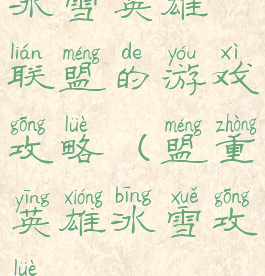 冰雪英雄
lián méng de yóu xì
联盟的游戏
gōng lüè ( méng zhòng
攻略(盟重
yīng xióng bīng xuě gōng
英雄冰雪攻
lüè